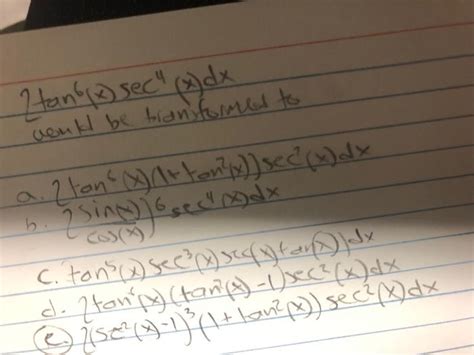 ∫tan⁶(x) sec⁴(x)dx
would be transformed to
a. ∫tan⁶(x)(1+tan²(x))sec²(x)dx
b. ∫(sin(x)/cos(x))⁶ sec⁴(x)dx
c. tan⁵(x) sec³(x) sec(x) tan(x))dx
d. ∫tan⁶(x)(tan²(x)-1)sec²(x)dx
e. ∫(sec²(x)-1)³(1+tan²(x)) sec²(x)dx